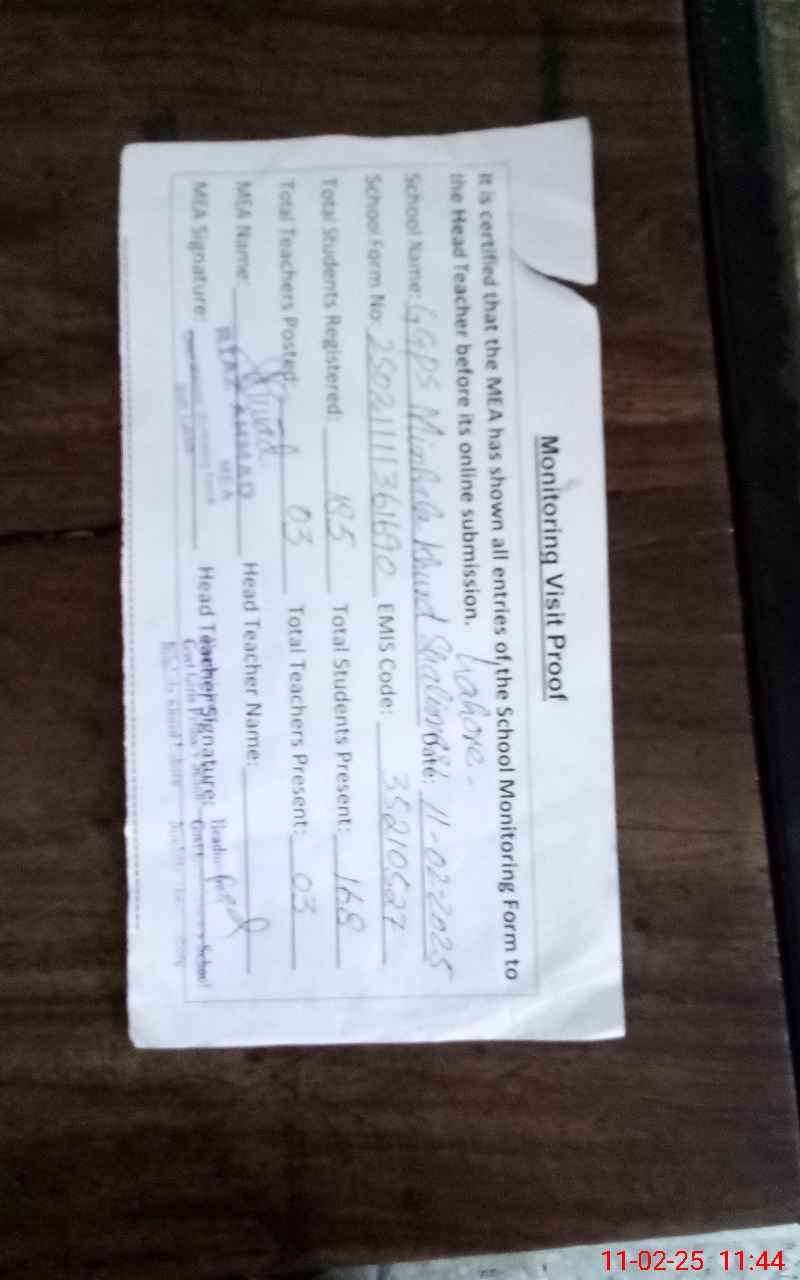 Monitoring Visit Proof
It is certified that the MEA has shown all entries of the School Monitoring Form to
the Head Teacher before its online submission.
Lahore.
School Name: GGPS Minhala Khurd Shalimar Date: 11-02-2025
School Form No: EMIS Code: 35210527
Total Students Registered: 185 Total Students Present: 168
Total Teachers Posted: 03 Total Teachers Present: 03
MEA Name: Head Teacher Name:
RIAZ AHMAD
MEA
MEA Signature: Head Teacher Signature:
11-02-25 11:44